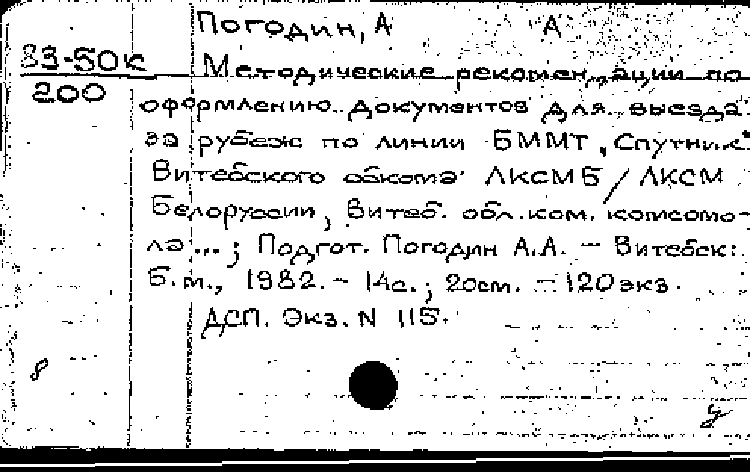 Погодин, А А
83-50к
200
Методические рекомендации по
оформлению документов для выезда
за рубеж по линии БММТ „Спутник"
Витебского обкома ЛКСМБ / ЛКСМ
Белоруссии, Витеб. обл. ком. комсомо-
ла ... ; Подгот. Погодин А.А. - Витебск:
Б.м., 1982. - 14с. ; 20см. - 120 экз.
ДСП. Экз. N 115.
8